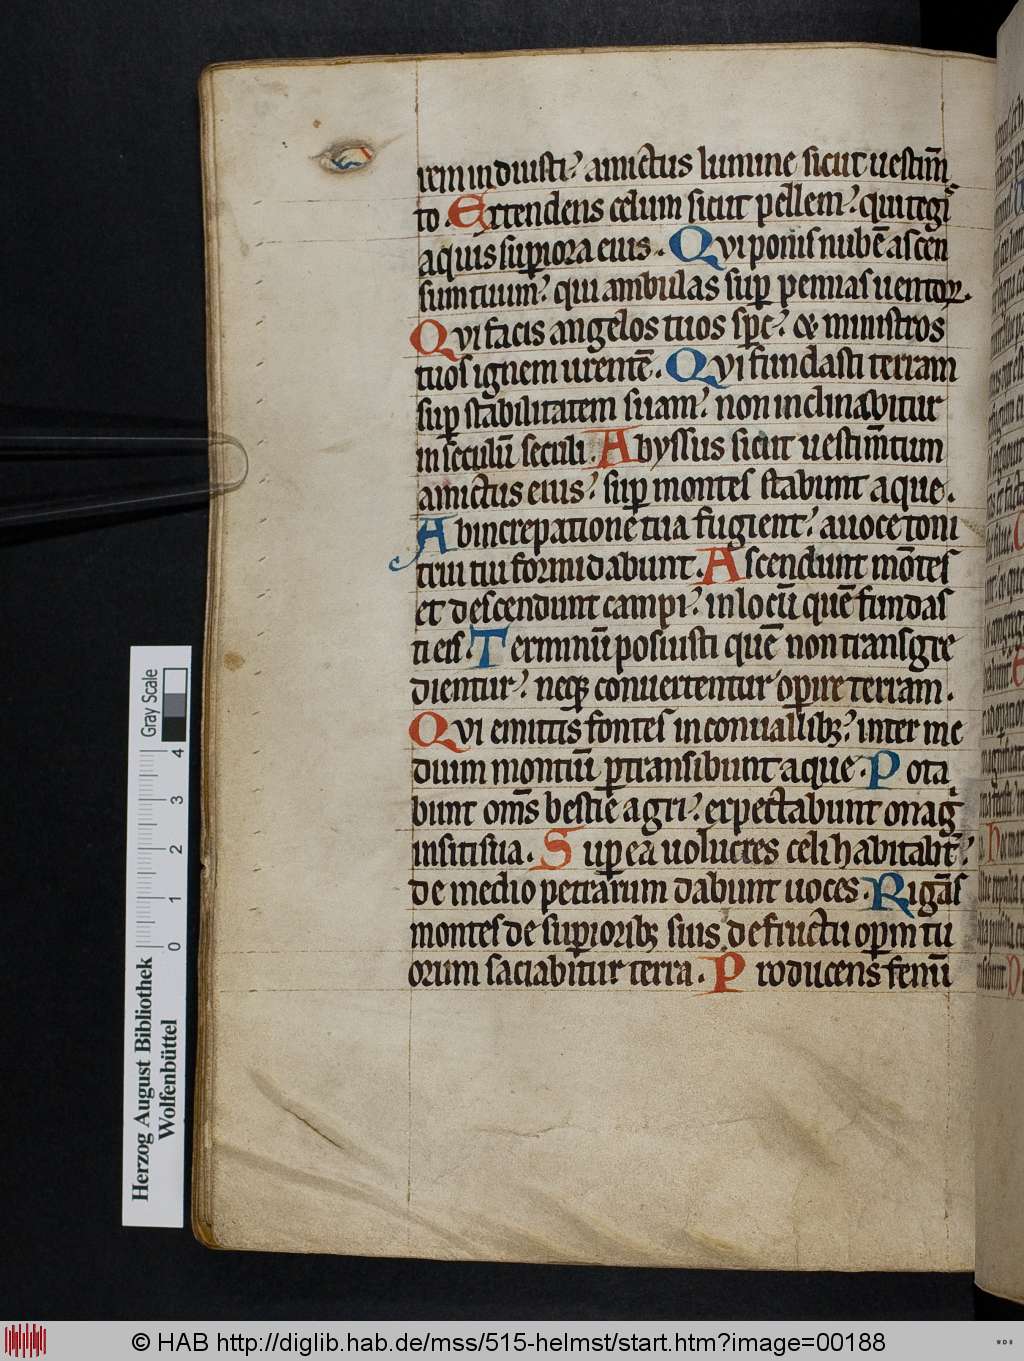 rem induisti? amictus lumine sicut uestim̅
to. Extendens celum sicut pellem? qui tegi
aquis sup̲iora eius. Qvi ponis nubē ascen
sum tuum? qui ambulas sup̲ pennas uentoꝝ.
Qvi facis angelos tuos sp̅c? & ministros
tuos ignem urentē. Qvi fundasti terram
sup̲ stabilitatem suam? non inclinabitur
in seculū seculi. Abyssus sicut uestim̅tum
amictus eius? sup̲ montes stabunt aque.
Ab increpatione tua fugient? a uoce toni
trui tui formidabunt. Ascendunt mōtes
et descendunt campi? in locū quē fundas
ti eis. Terminū posuisti quē non transgre
dientur? neqꝫ conuertentur op̲ire terram.
Qvi emittis fontes in conuallibꝫ? inter me
dium montiū p̲transibunt aque. Pota
bunt om̅s bestie agri? expectabunt onagͥ
in siti sua. Sup̲ ea uolucres celi habitabt̅?
de medio petrarum dabunt uoces. Rigās
montes de sup̲ioribꝫ suis de fructu op̲ım tu
orum saciabitur terra. Producens fenū
Gray Scale
4
3
2
1
0
Herzog August Bibliothek
Wolfenbüttel
© HAB http://diglib.hab.de/mss/515-helmst/start.htm?image=00188